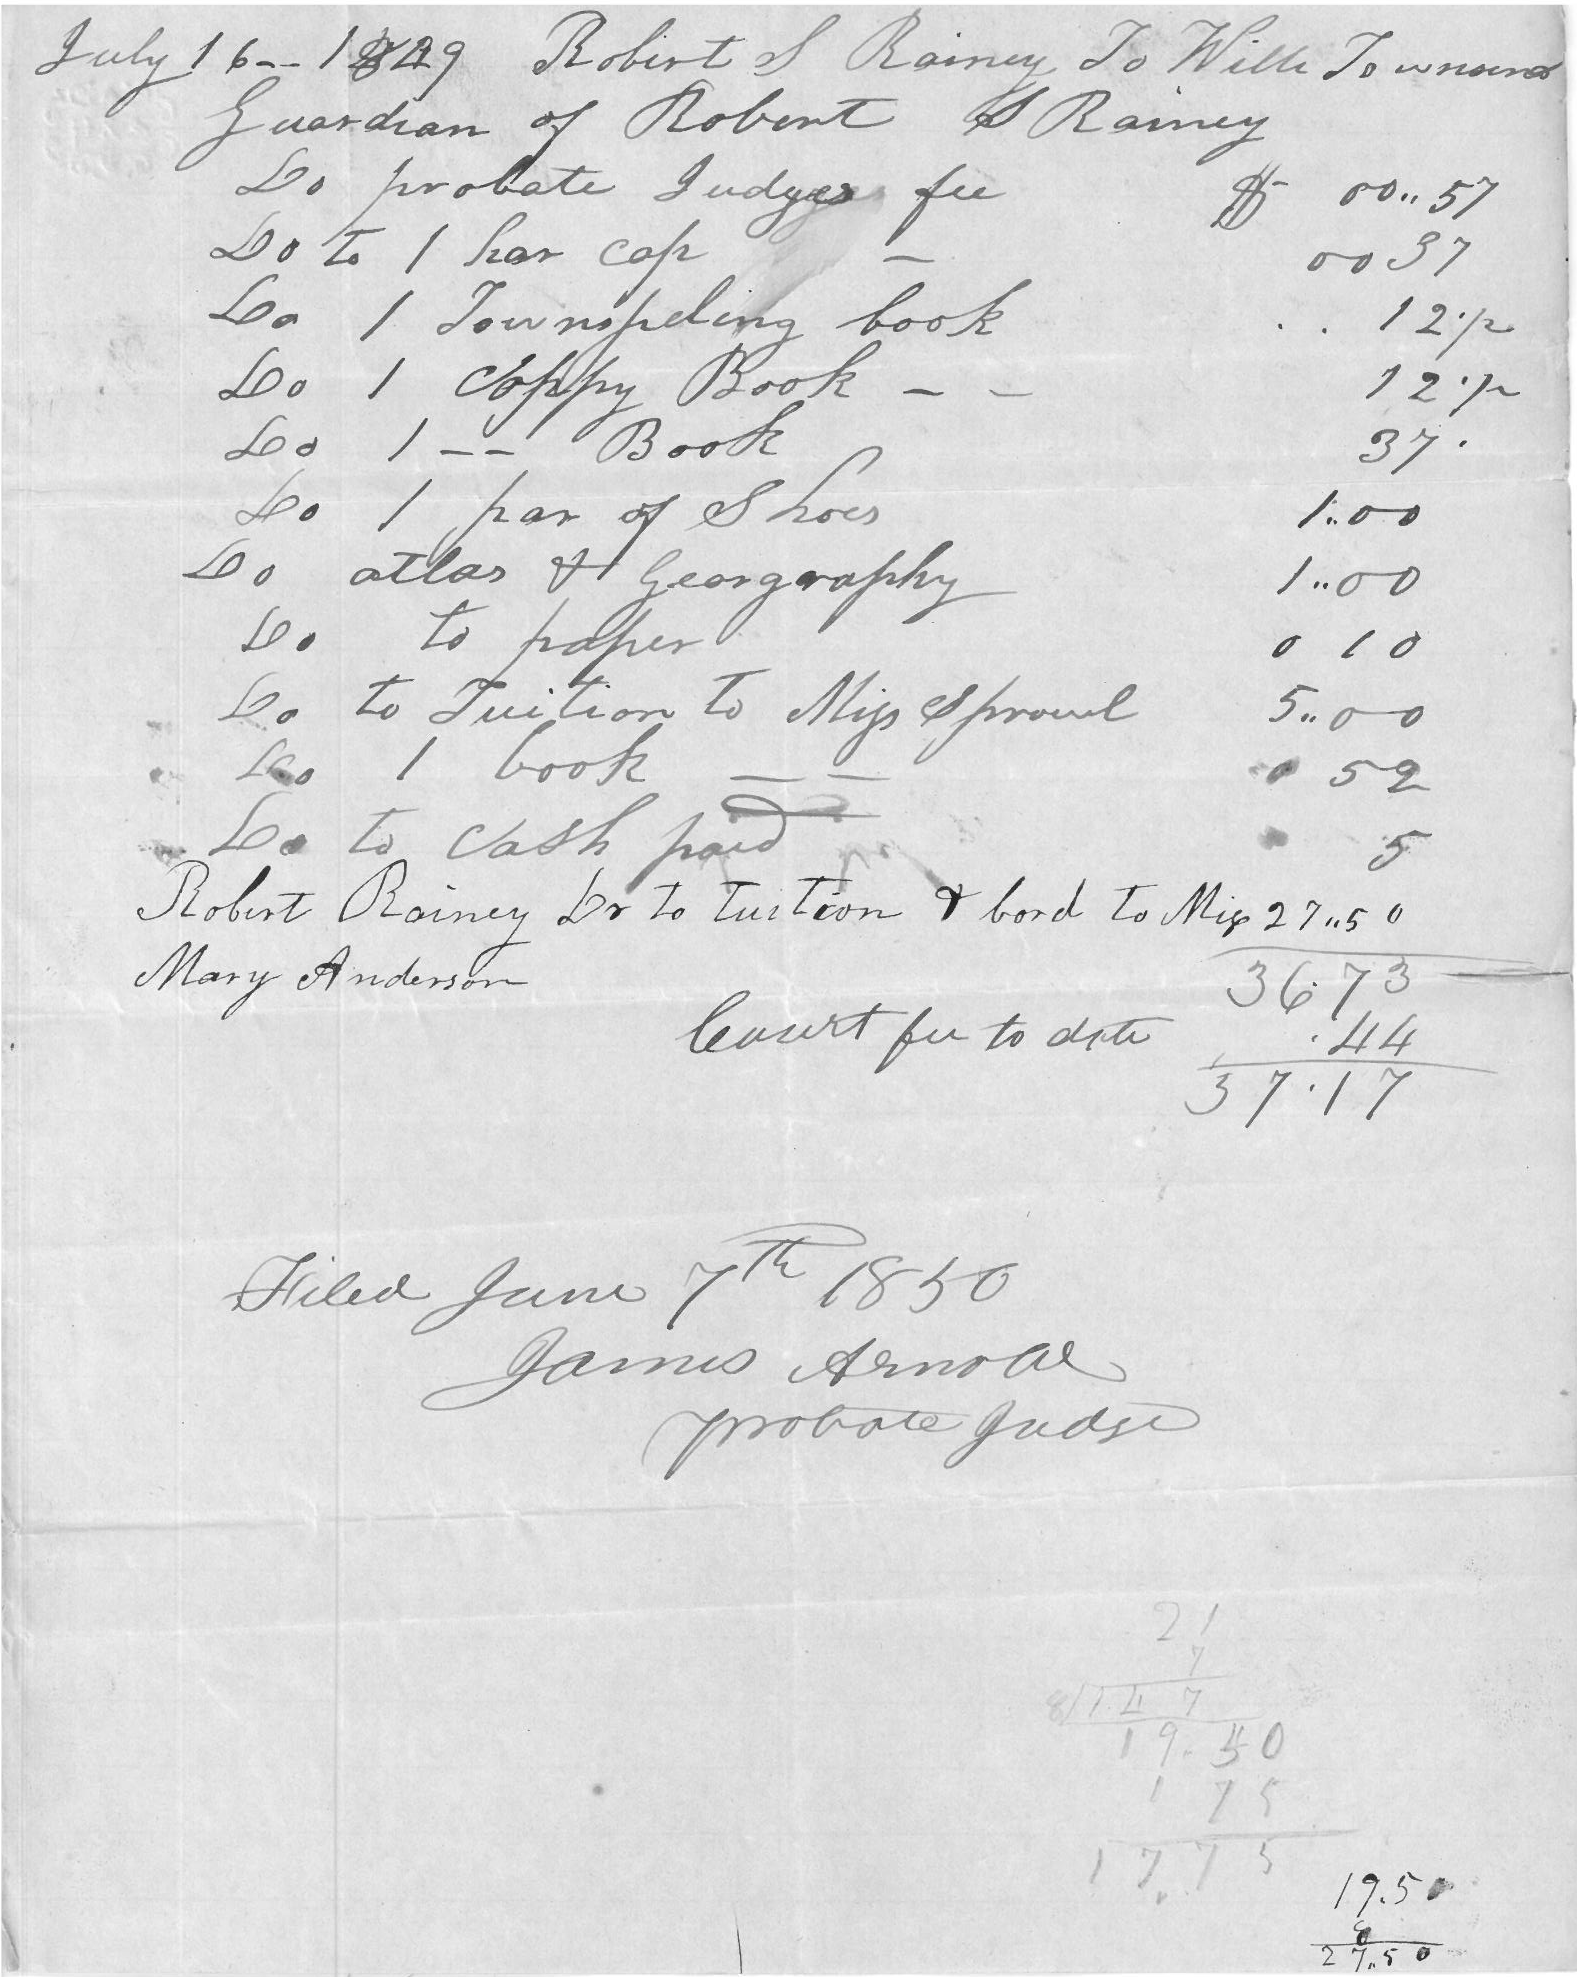 July 16-- 1849 Robert S Rainey To Will Townsend
Guardian of Robert S Rainey
Do probate Judges fee $ 00.. 57
Do to 1 har cap – 00 37
Do 1 Townspeling book . . 12·/2
Do 1 Coppy Book – – 12·/2
Do 1 -- Book 37 ·
Do 1 par of Shoes 1..00
Do atlas & Georgraphy 1..00
Do to paper 0 10
Do to Tuition to Miss Sproul 5..00
Do 1 book — — 0 52
Do to Cash paid 5
Robert Rainey Dr to tuition & bord to Miss 27..50
Mary Anderson
36.73
Court fee to date .44
37.17
Filed June 7th 1850
James Arnold
probate Judge
21
7
8/147
19.50
1 75
17.75
19.50
8
27.50